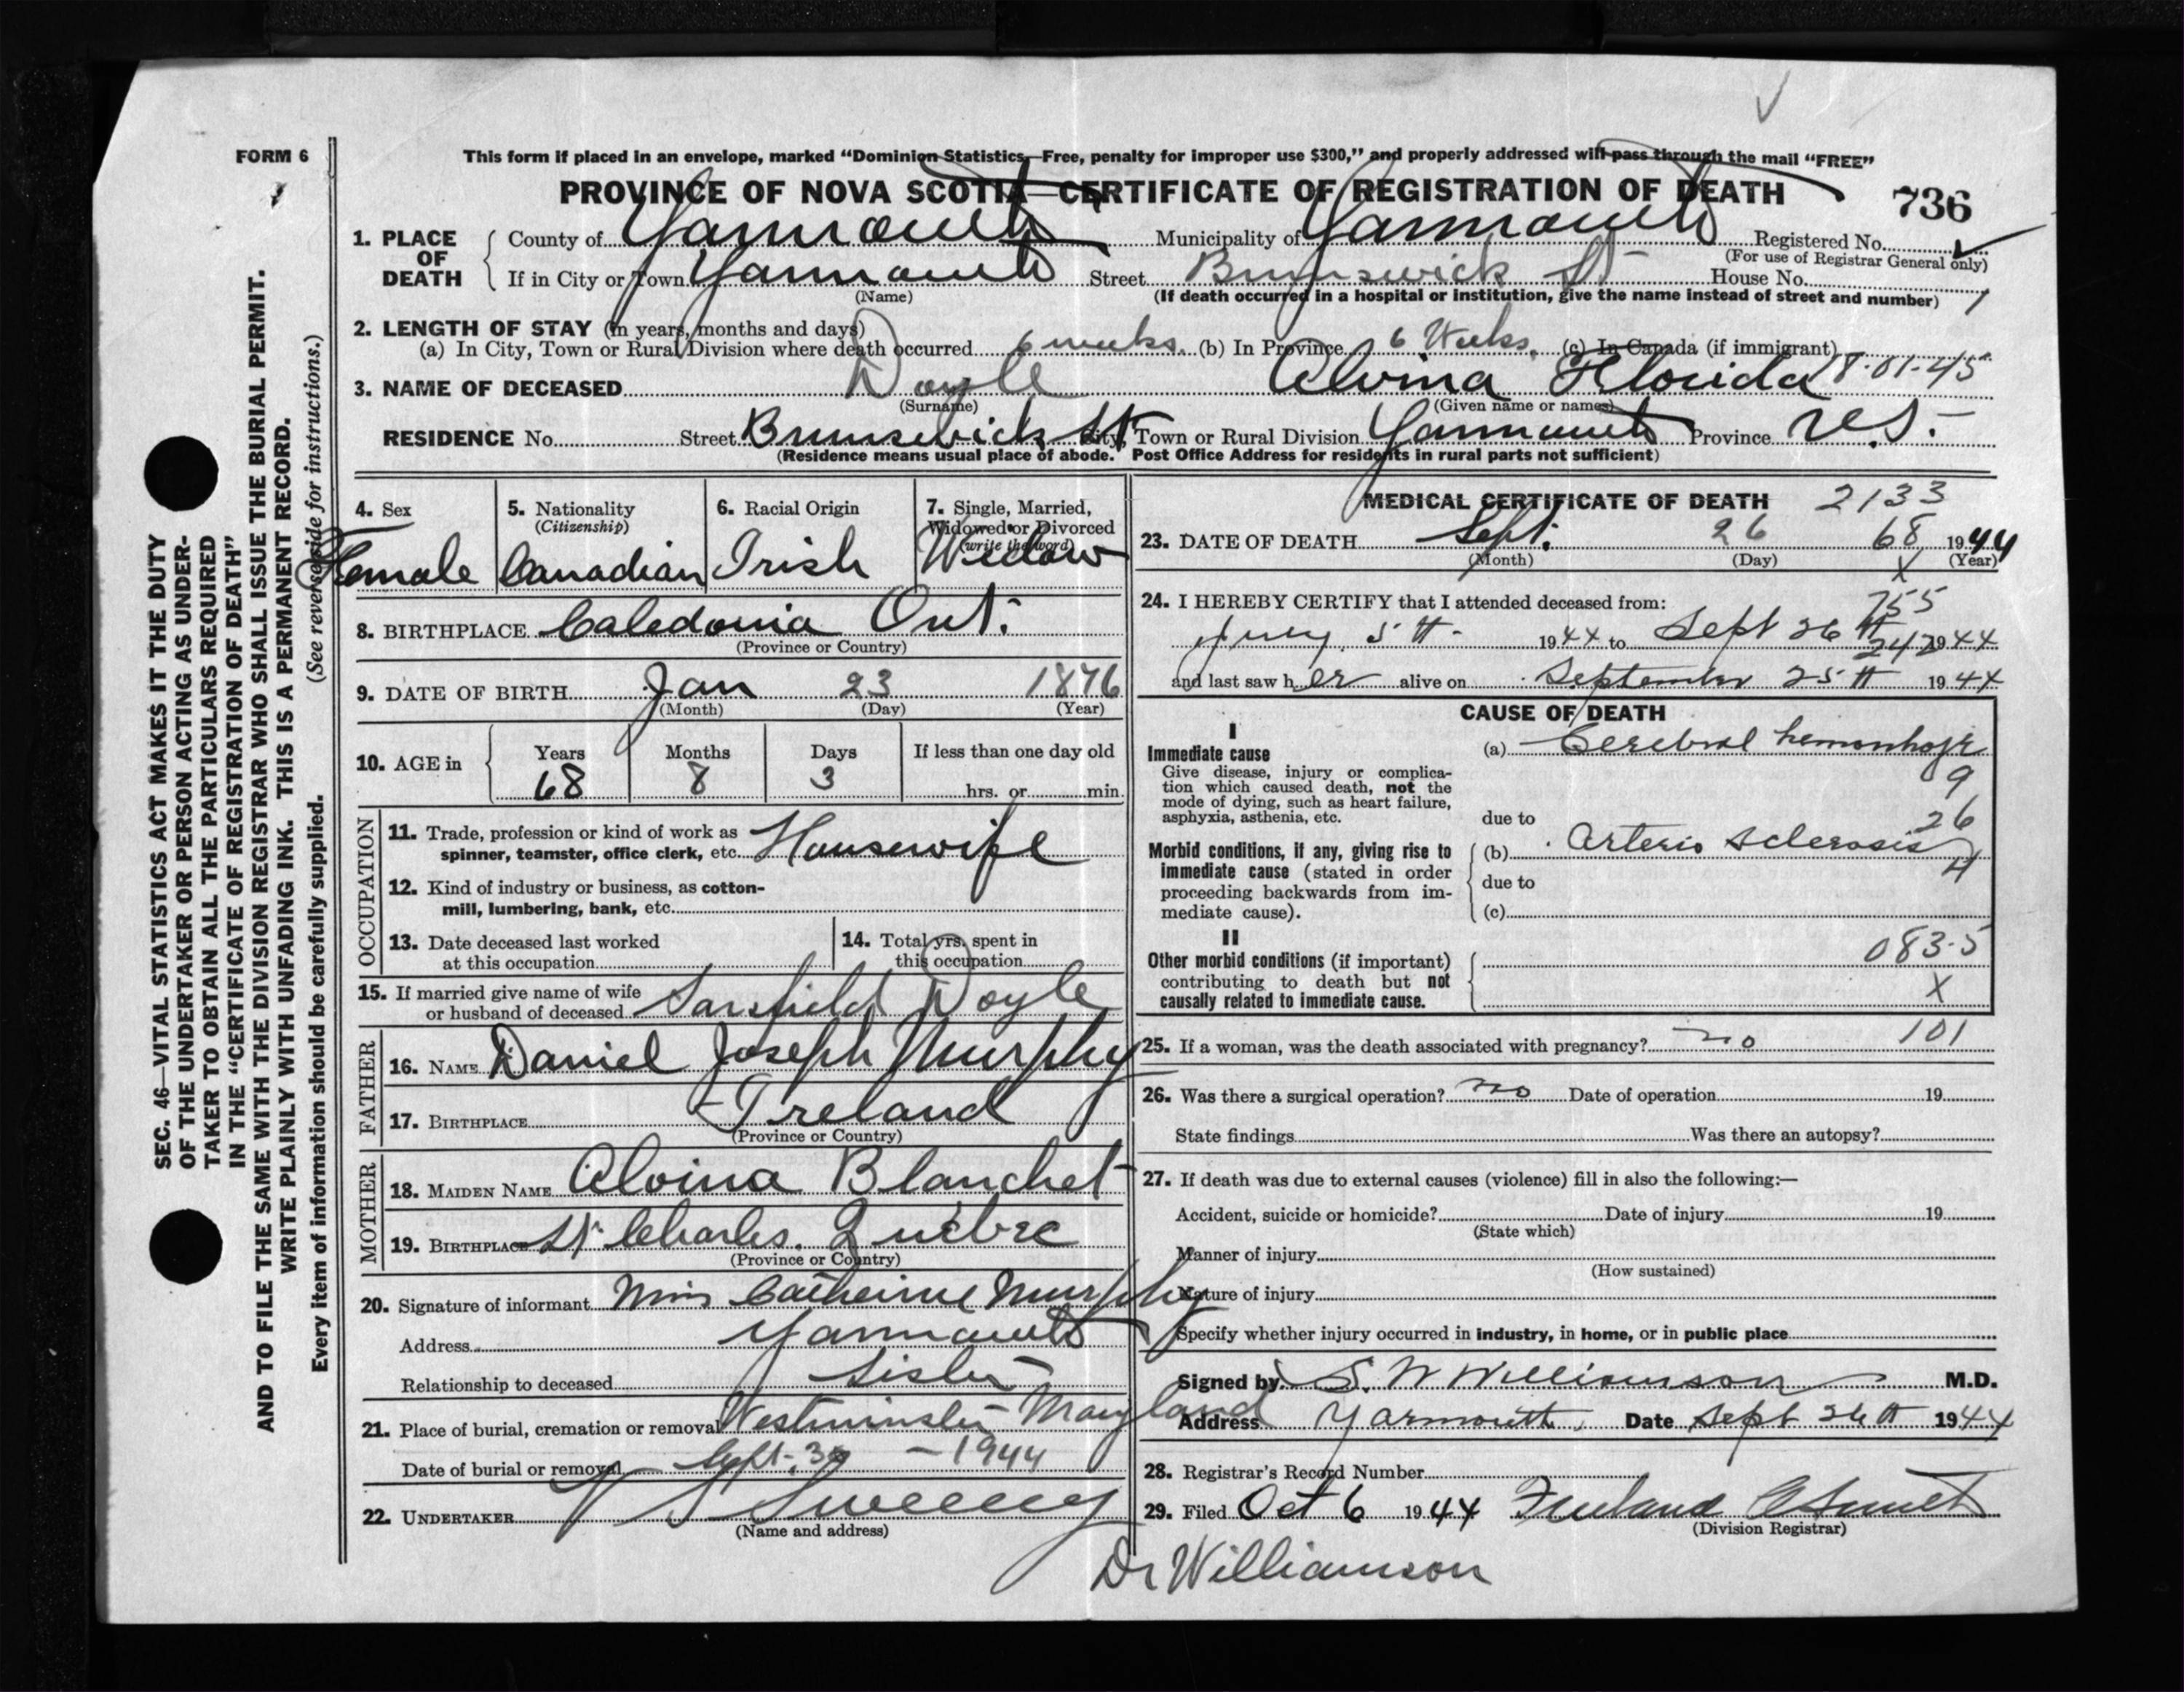 FORM 6
This form if placed in an envelope, marked “Dominion Statistics—Free, penalty for improper use $300,” and properly addressed will pass through the mail “FREE”
PROVINCE OF NOVA SCOTIA—CERTIFICATE OF REGISTRATION OF DEATH
736
1. PLACE OF DEATH
County of Yarmouth Municipality of Yarmouth Registered No.
(For use of Registrar General only)
If in City or Town Yarmouth Street Brunswick St House No.
(Name) (If death occurred in a hospital or institution, give the name instead of street and number)
2. LENGTH OF STAY (in years, months and days)
(a) In City, Town or Rural Division where death occurred 6 weeks (b) In Province 6 Weeks. (c) In Canada (if immigrant)
3. NAME OF DECEASED Doyle Alvina Florida 18-01-45
(Surname) (Given name or names)
RESIDENCE No. Street Brunswick St City, Town or Rural Division Yarmouth Province N.S.
(Residence means usual place of abode. Post Office Address for residents in rural parts not sufficient)
4. Sex
Female
5. Nationality
(Citizenship)
Canadian
6. Racial Origin
Irish
7. Single, Married,
Widowed or Divorced
(write the word)
Widow
8. BIRTHPLACE Caledonia Ont.
(Province or Country)
9. DATE OF BIRTH Jan 23 1876
(Month) (Day) (Year)
10. AGE in
Years Months Days If less than one day old
68 8 3 hrs. or min.
OCCUPATION
11. Trade, profession or kind of work as
spinner, teamster, office clerk, etc. Housewife
12. Kind of industry or business, as cotton-
mill, lumbering, bank, etc.
13. Date deceased last worked
at this occupation
14. Total yrs. spent in
this occupation
15. If married give name of wife
or husband of deceased Sarsfield Doyle
FATHER
16. NAME Daniel Joseph Murphy
17. BIRTHPLACE Ireland
(Province or Country)
MOTHER
18. MAIDEN NAME Alvina Blanchet
19. BIRTHPLACE St Charles. Quebec
(Province or Country)
20. Signature of informant Miss Catherine Murphy
Address Yarmouth
Relationship to deceased Sister
21. Place of burial, cremation or removal Westminster Maryland
Date of burial or removal Sept. 30 - 1944
22. UNDERTAKER V S Sweeney
(Name and address)
MEDICAL CERTIFICATE OF DEATH 2133
23. DATE OF DEATH Sept. 26 68 1944
(Month) (Day) X (Year)
24. I HEREBY CERTIFY that I attended deceased from: 755
July 5th 1944 to Sept 26th 242 1944
and last saw her alive on September 25th 1944
CAUSE OF DEATH
I
Immediate cause
Give disease, injury or complica-
tion which caused death, not the
mode of dying, such as heart failure,
asphyxia, asthenia, etc.
(a) Cerebral hemorrhage
9
due to 26
Morbid conditions, if any, giving rise to
immediate cause (stated in order
proceeding backwards from im-
mediate cause).
(b) Arterio Sclerosis
due to 4
(c)
II
Other morbid conditions (if important)
contributing to death but not
causally related to immediate cause.
083.5
X
25. If a woman, was the death associated with pregnancy? no 101
26. Was there a surgical operation? no Date of operation 19
State findings Was there an autopsy?
27. If death was due to external causes (violence) fill in also the following:—
Accident, suicide or homicide? Date of injury 19
(State which)
Manner of injury
(How sustained)
Nature of injury
Specify whether injury occurred in industry, in home, or in public place
Signed by S. W Williamson M.D.
Address Yarmouth, Date Sept 26th 1944
28. Registrar's Record Number
29. Filed Oct 6 1944
(Division Registrar)
Dr Williamson
SEC. 46—VITAL STATISTICS ACT MAKES IT THE DUTY
OF THE UNDERTAKER OR PERSON ACTING AS UNDER-
TAKER TO OBTAIN ALL THE PARTICULARS REQUIRED
IN THE “CERTIFICATE OF REGISTRATION OF DEATH”
AND TO FILE THE SAME WITH THE DIVISION REGISTRAR WHO SHALL ISSUE THE BURIAL PERMIT.
WRITE PLAINLY WITH UNFADING INK. THIS IS A PERMANENT RECORD.
Every item of information should be carefully supplied. (See reverse side for instructions.)